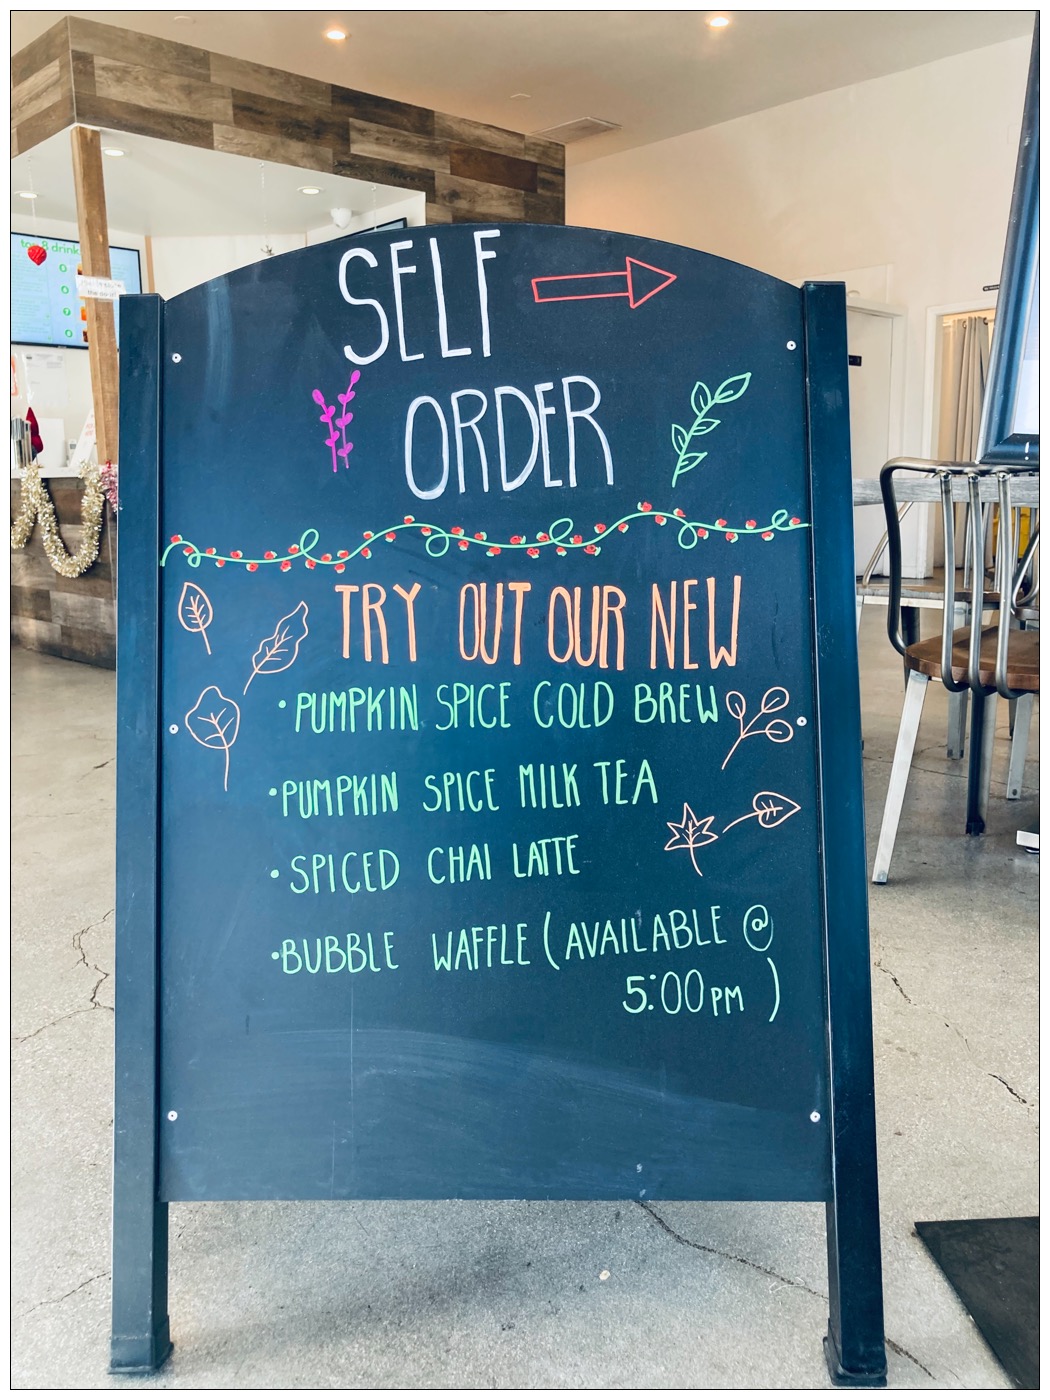 SELF
ORDER
TRY OUT OUR NEW
• PUMPKIN SPICE COLD BREW
• PUMPKIN SPICE MILK TEA
• SPICED CHAI LATTE
• BUBBLE WAFFLE (AVAILABLE @
5:00PM )
top 8 drink